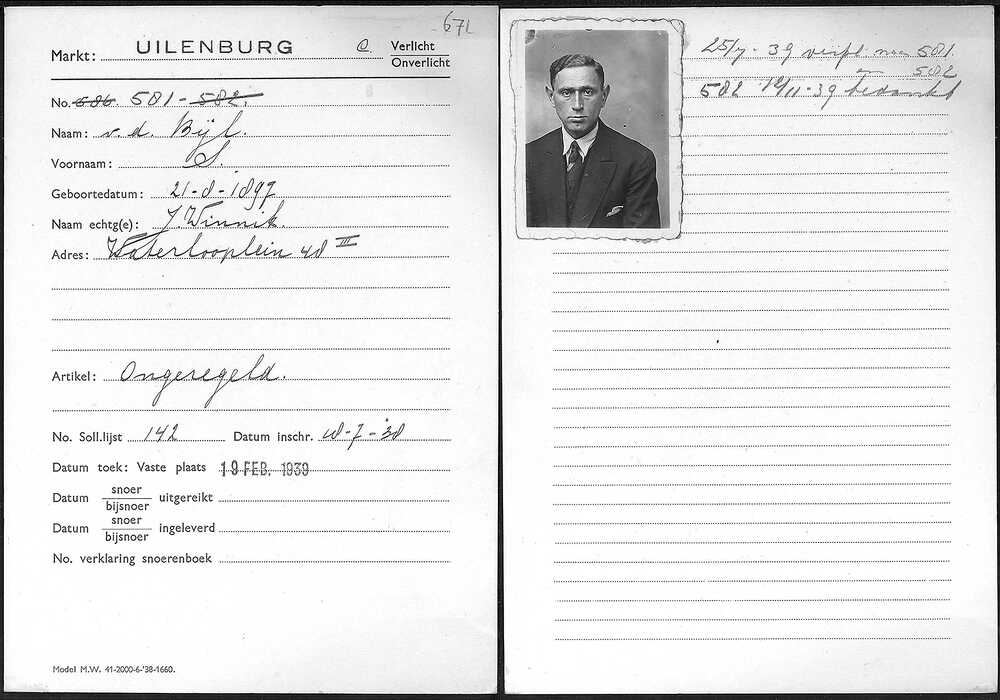 671
Markt: UILENBURG
Verlicht
Onverlicht
No. 686. 581 - 582.
Naam: v. d. Bijl.
Voornaam: S.
Geboortedatum: 21-8-1897
Naam echtg(e): J. Winnik.
Adres: Waterlooplein 48 III
Artikel: Ongeregeld.
No. Soll.lijst 142 Datum inschr. 18-7-38
Datum toek: Vaste plaats 19 FEB. 1939
Datum snoer/bijsnoer uitgereikt
Datum snoer/bijsnoer ingeleverd
No. verklaring snoerenboek
Model M.W. 41-2000-6-'38-1660.
25/7-39 verpl. naar 581.
en 582
582 12/11-39 bedankt